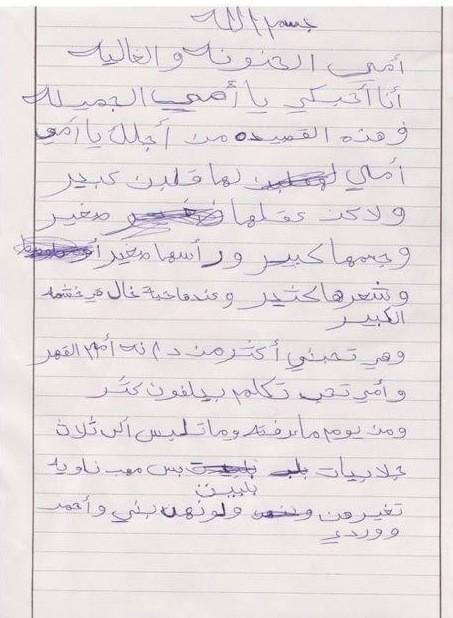 بسم الله
أمي الحنونه والغاليه
أنا أحبكي يا أمي الجميله
وهذه القصيده من أجلك يا أمي
أمي لها قلبن كبير
ولاكن عقلها صغير
وجسمها كبير ورأسها صغير
وشعرها كثير وعندها حبة خال في خشمه
الكبير
وهي تحبني أكثر من دانه أم القهر
وأمي تحب تكلم بيلفون كثر
ومن يوم ماعرفته وما تلبس الى ثلاث
جلابيات بس مهب ناويه
بلبيت
تغيرهن ولونهن بني وأحمر
ووردي